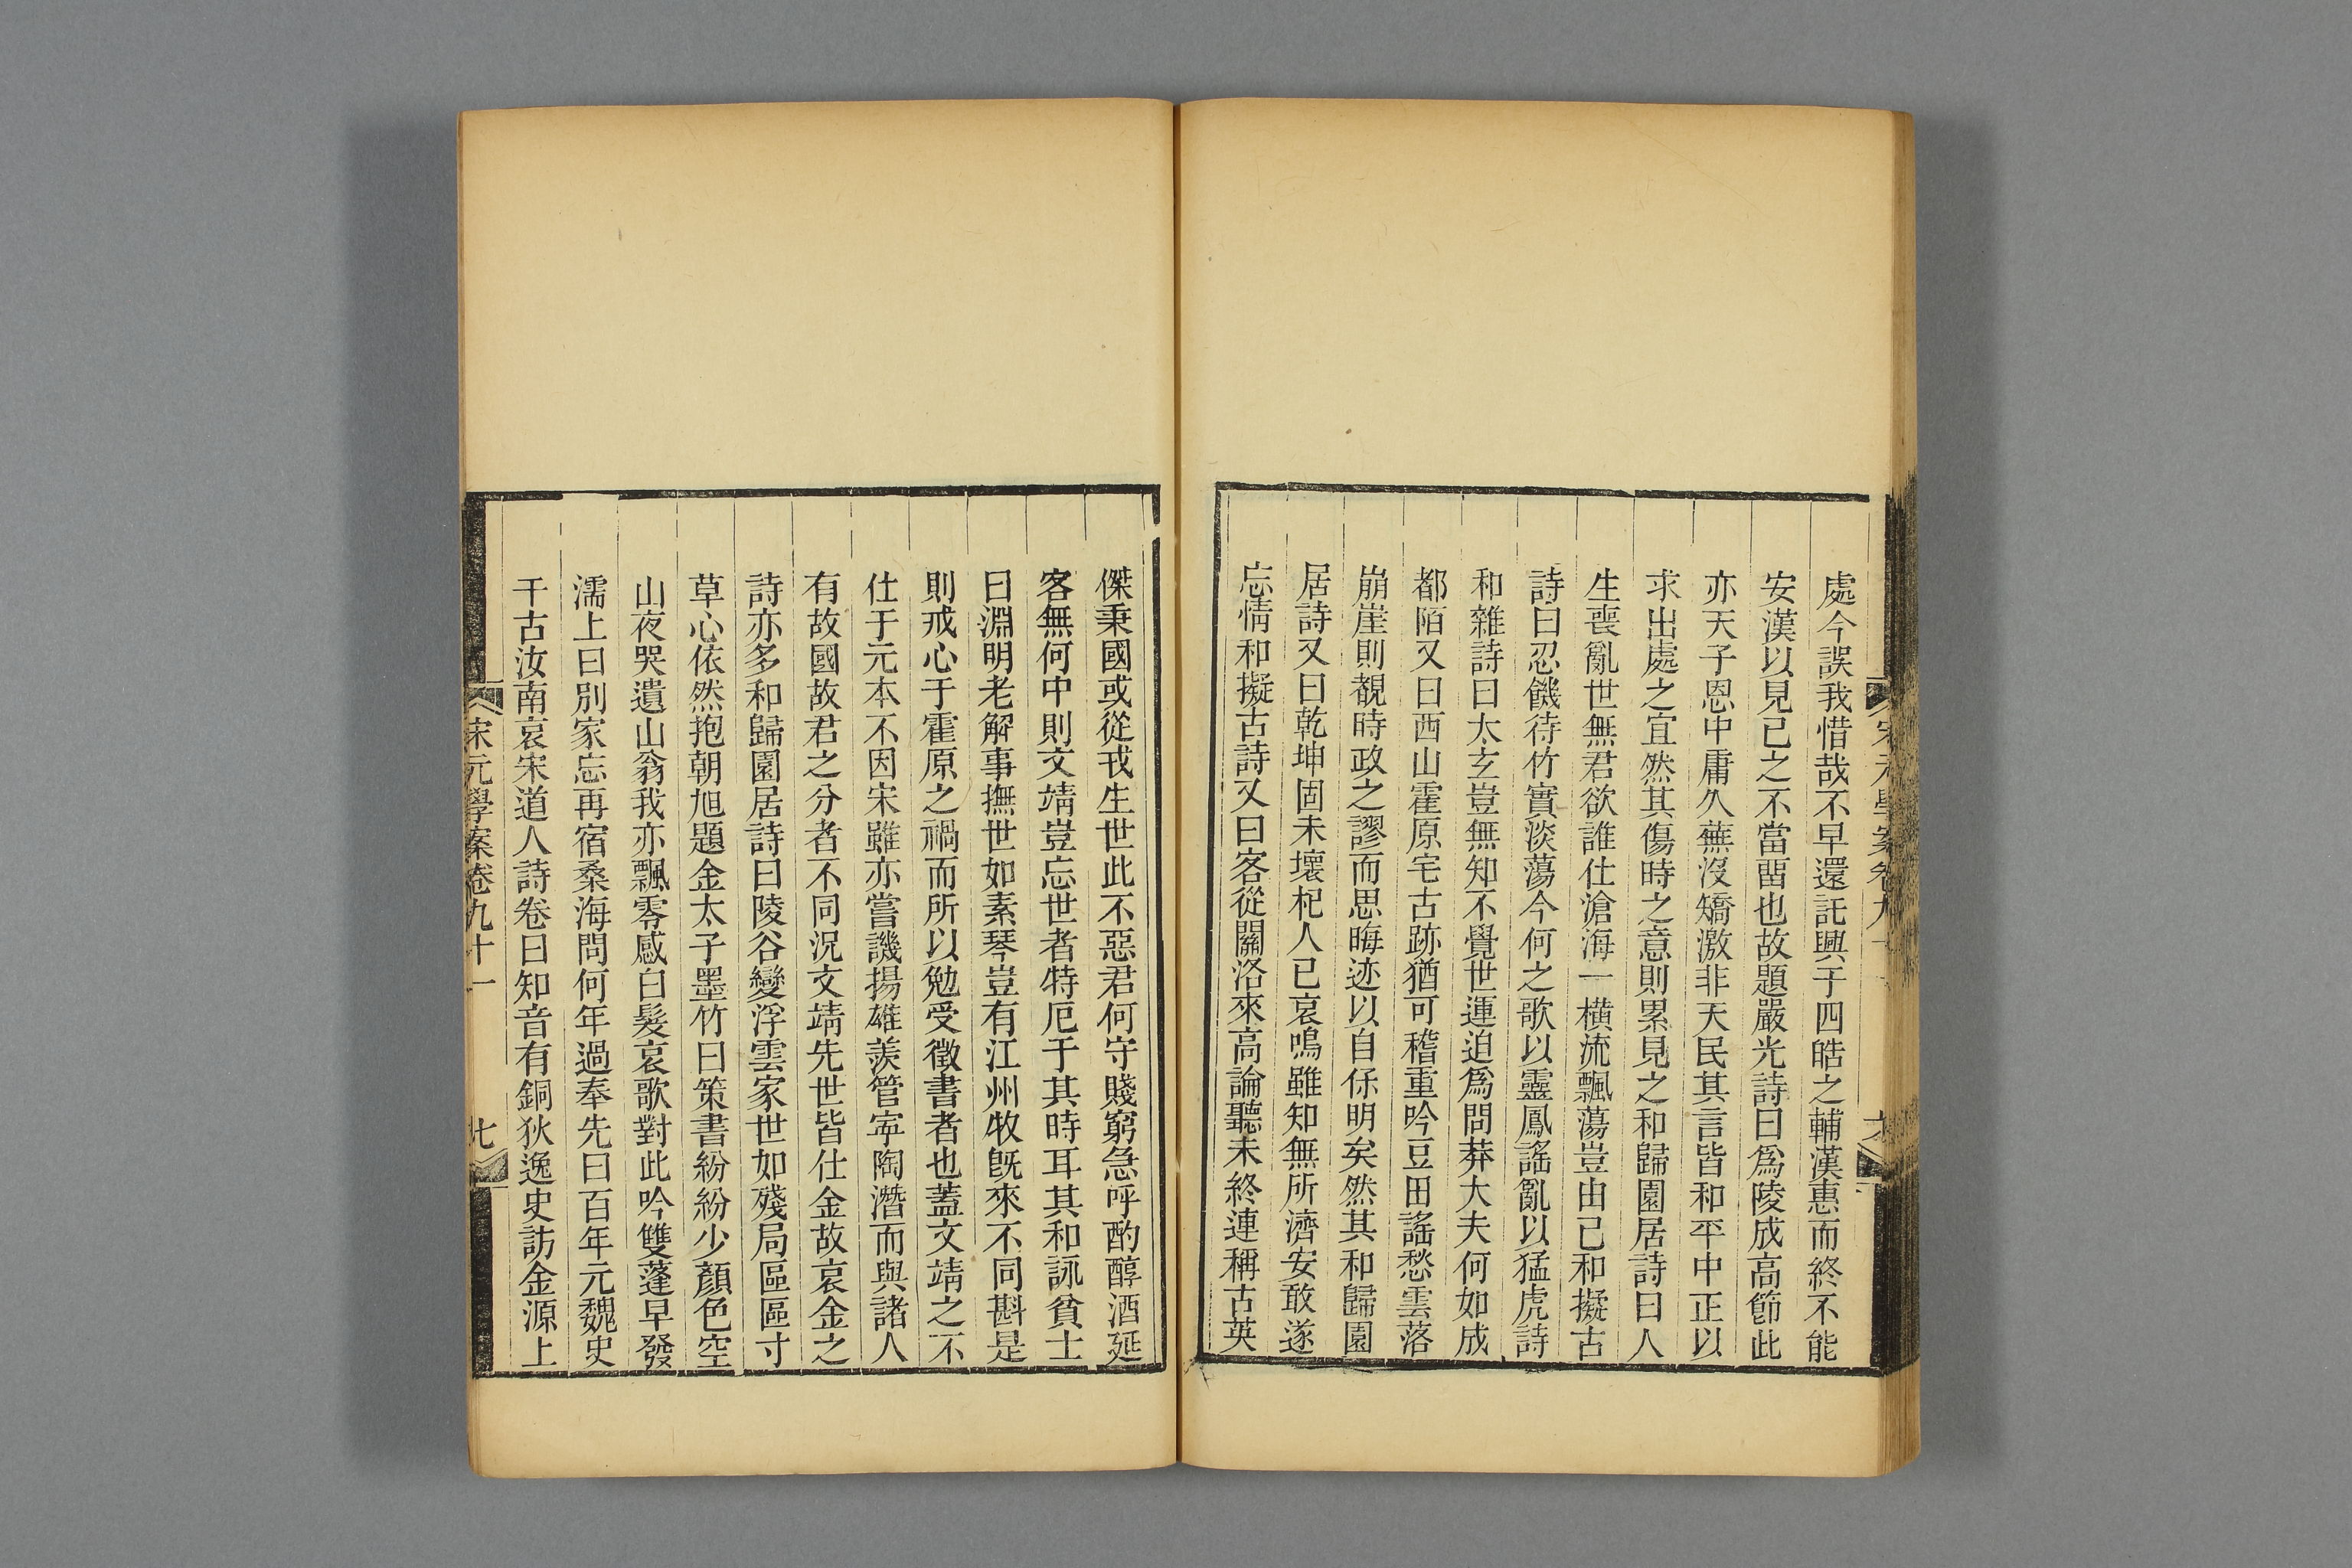 處今誤我惜哉不早還託興于四皓之輔漢惠而終不能
安漢以見已之不當畱也故題嚴光詩曰爲陵成高節此
亦天子恩中庸久蕪沒矯激非天民其言皆和平中正以
求出處之宜然其傷時之意則累見之和歸園居詩曰人
生喪亂世無君欲誰仕滄海一橫流飄蕩豈由己和擬古
詩曰忍饑待竹實淡蕩今何之歌以靈鳳謠亂以猛虎詩
和雜詩曰太玄豈無知不覺世運迫爲問莽大夫何如成
都陌又曰西山霍原宅古跡猶可稽重吟豆田謠愁雲落
崩崖則覩時政之謬而思晦迹以自保明矣然其和歸園
居詩又曰乾坤固未壞杞人已哀鳴雖知無所濟安敢遂
忘情和擬古詩又曰客從關洛來高論聽未終連稱古英
傑秉國或從戎生世此不惡君何守賤窮急呼酌醇酒延
客無何中則文靖豈忘世者特厄于其時耳其和詠貧士
曰淵明老解事撫世如素琴豈有江州牧旣來不同斟是
則戒心于霍原之禍而所以勉受徵書者也蓋文靖之不
仕于元本不因宋雖亦嘗譏揚雄羨管寧陶潛而與諸人
有故國故君之分者不同況文靖先世皆仕金故哀金之
詩亦多和歸園居詩曰陵谷變浮雲家世如殘局區區寸
草心依然抱朝旭題金太子墨竹曰策書紛紛少顏色空
山夜哭遺山翁我亦飄零感白髮哀歌對此吟雙蓬早發
濡上曰別家忘再宿桑海問何年過奉先曰百年元魏史
千古汝南哀宋道人詩卷曰知音有銅狄逸史訪金源上
宋元學案卷九十一